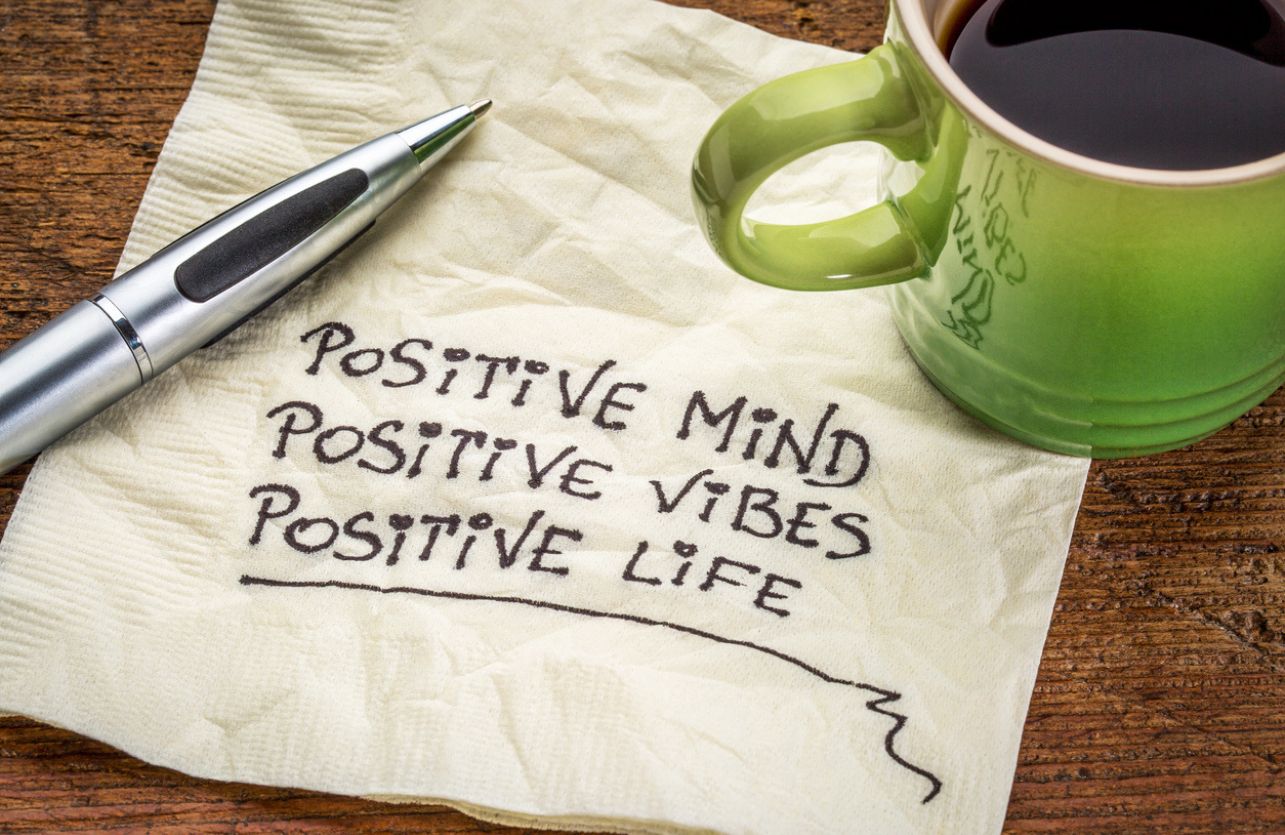 POSiTiVE MiND
POSiTiVE ViBES
POSiTiVE LiFE